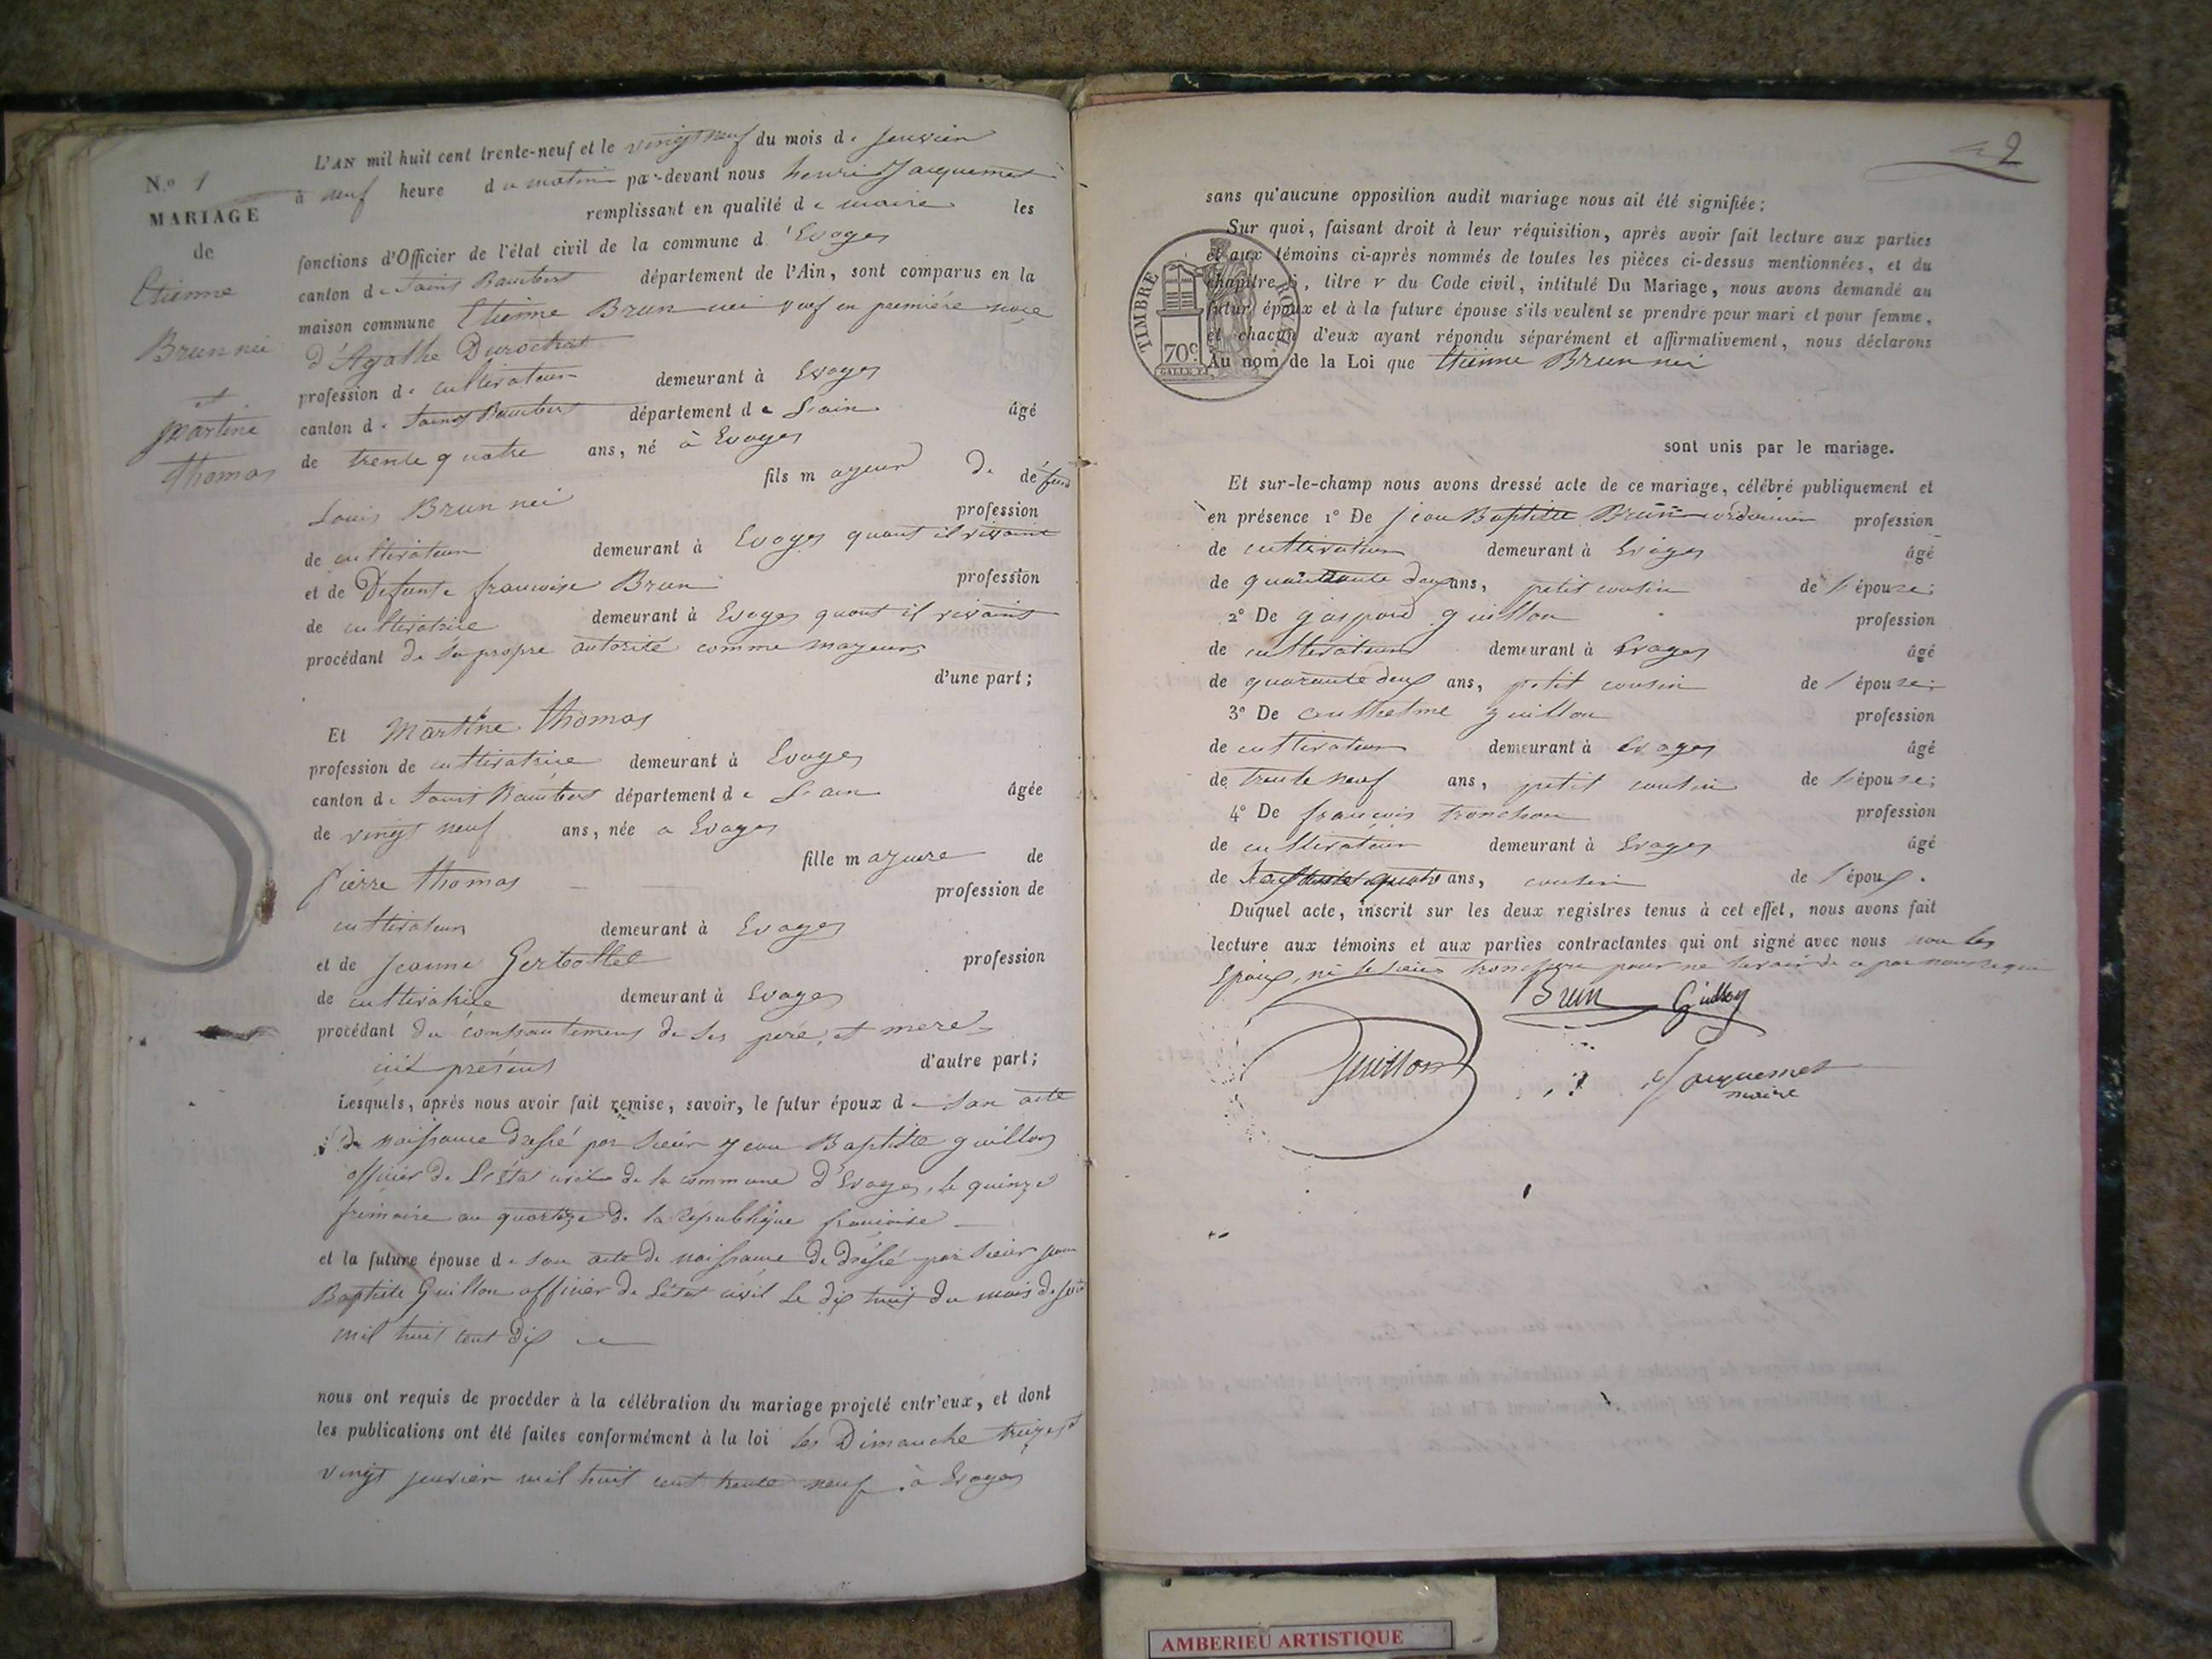 N.º 1
MARIAGE
de
Etienne
Brun nei
et
Martine
Thomas
L'AN mil huit cent trente-neuf et le vingt neuf du mois de Janvier
à neuf heure du matin par-devant nous henri Jacquemet
remplissant en qualité de maire les
fonctions d'Officier de l'état civil de la commune d'Evoges
canton de Saint Rambert département de l'Ain, sont comparus en la
maison commune Etienne Brun nei veuf en première noce
d'Agathe Durochat
profession de cultivateur demeurant à Evoges
canton de Saint Rambert département de L'ain âgé
de trente quatre ans, né à Evoges
fils mayeur de défunt
Louis Brun nei profession
de cultivateur demeurant à Evoges quant il vivait
et de Défunte francoise Brun profession
de cultivatrice demeurant à Evoges quant il vivait
procédant de sa propre autorité comme mayeur
d'une part;
Et Martine Thomas
profession de cultivatrice demeurant à Evoges
canton de Saint Rambert département de L'ain âgée
de vingt neuf ans, née a Evoges
fille mayeure de
Pierre Thomas profession de
cultivateur demeurant à Evoges
et de Jeanne profession
de cultivatrice demeurant à Evoges
procédant du consantement de ses père et mere
ici présent d'autre part;
Lesquels, après nous avoir fait remise, savoir, le futur époux de son acte
de naissance dressé par Sieur Jean Baptiste guillon
officier de L'état civil de la commune d'Evoges, le quinze
frimaire an quatorze de la république francoise
et la future épouse de son acte de naissance de dréssé par Sieur Jean
Baptiste Guillon officier de L'état civil Le dix huit du mois de
mil huit cent dix
nous ont requis de procéder à la célébration du mariage projeté entr'eux, et dont
les publications ont été faites conformément à la loi les Dimanche treize et
vingt janvier mil huit cent trente neuf à Evoges
2
sans qu'aucune opposition audit mariage nous ait été signifiée;
Sur quoi, faisant droit à leur réquisition, après avoir fait lecture aux parties
et aux témoins ci-après nommés de toutes les pièces ci-dessus mentionnées, et du
chapitre 6, titre v du Code civil, intitulé Du Mariage, nous avons demandé au
futur époux et à la future épouse s'ils veulent se prendre pour mari et pour femme,
et chacun d'eux ayant répondu séparément et affirmativement, nous déclarons
Au nom de la Loi que Etienne Brun nei
TIMBRE ROYAL
70c
sont unis par le mariage.
Et sur-le-champ nous avons dressé acte de ce mariage, célébré publiquement et
en présence 1º De Jean Baptiste Brun profession
de cultivateur demeurant à Evoges âgé
de quarante deux ans, petit cousin de l'épouse;
2º De gaspard guillon profession
de cultivateur demeurant à Evoges âgé
de quarante deux ans, petit cousin de l'épouse;
3º De anthelme guillon profession
de cultivateur demeurant à Evoges âgé
de trente neuf ans, petit cousin de l'épouse;
4º De francois tronchon profession
de cultivateur demeurant à Evoges âgé
de quatre ans, cousin de l'époux.
Duquel acte, inscrit sur les deux registres tenus à cet effet, nous avons fait
lecture aux témoins et aux parties contractantes qui ont signé avec nous non les
Epoux, ni le sieur tronchon pour ne savoir de ce par nous requis
Brun Guillon
Guillon
Jacquemet
maire
AMBERIEU ARTISTIQUE